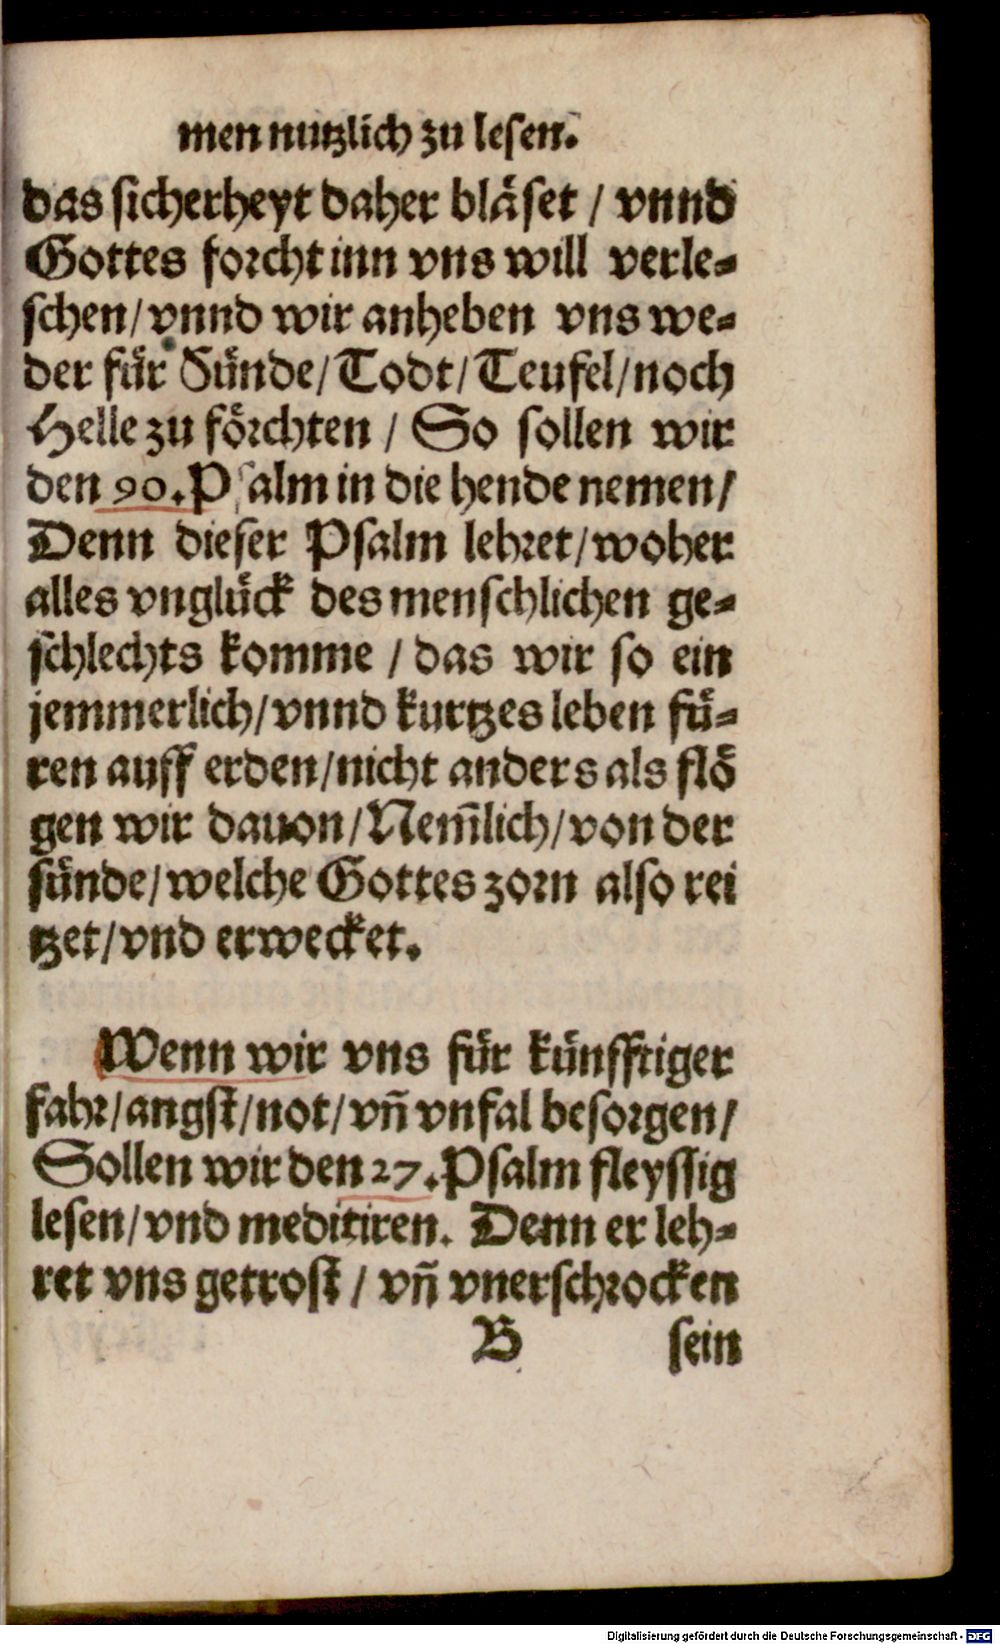 men nutzlich zu lesen.
das sicherheyt daher bläset / vnnd
Gottes forcht inn vns will verle-
schen / vnnd wir anheben vns we-
der für Sünde / Todt / Teufel / noch
Helle zu förchten / So sollen wir
den 90. Psalm in die hende nemen /
Denn dieser Psalm lehret / woher
alles vnglück des menschlichen ge-
schlechts komme / das wir so ein
jemmerlich / vnnd kurtzes leben fü-
ren auff erden / nicht anders als flö
gen wir dauon / Nem̃lich / von der
sünde / welche Gottes zorn also rei
tzet / vnd erwecket.
Wenn wir vns für künfftiger
fahr / angst / not / vñ vnfal besorgen /
Sollen wir den 27. Psalm fleyssig
lesen / vnd meditiren. Denn er leh-
ret vns getrost / vñ vnerschrocken
B sein
Digitalisierung gefördert durch die Deutsche Forschungsgemeinschaft - DFG